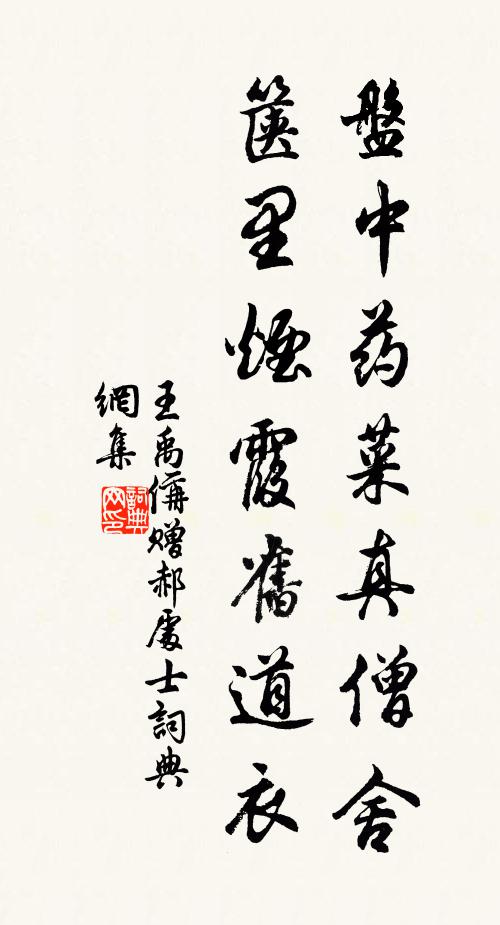 盤中药菜真僧舍
箧里煙霞舊道衣
王禹偁赠郝處士詞典
網集
詞典
网印